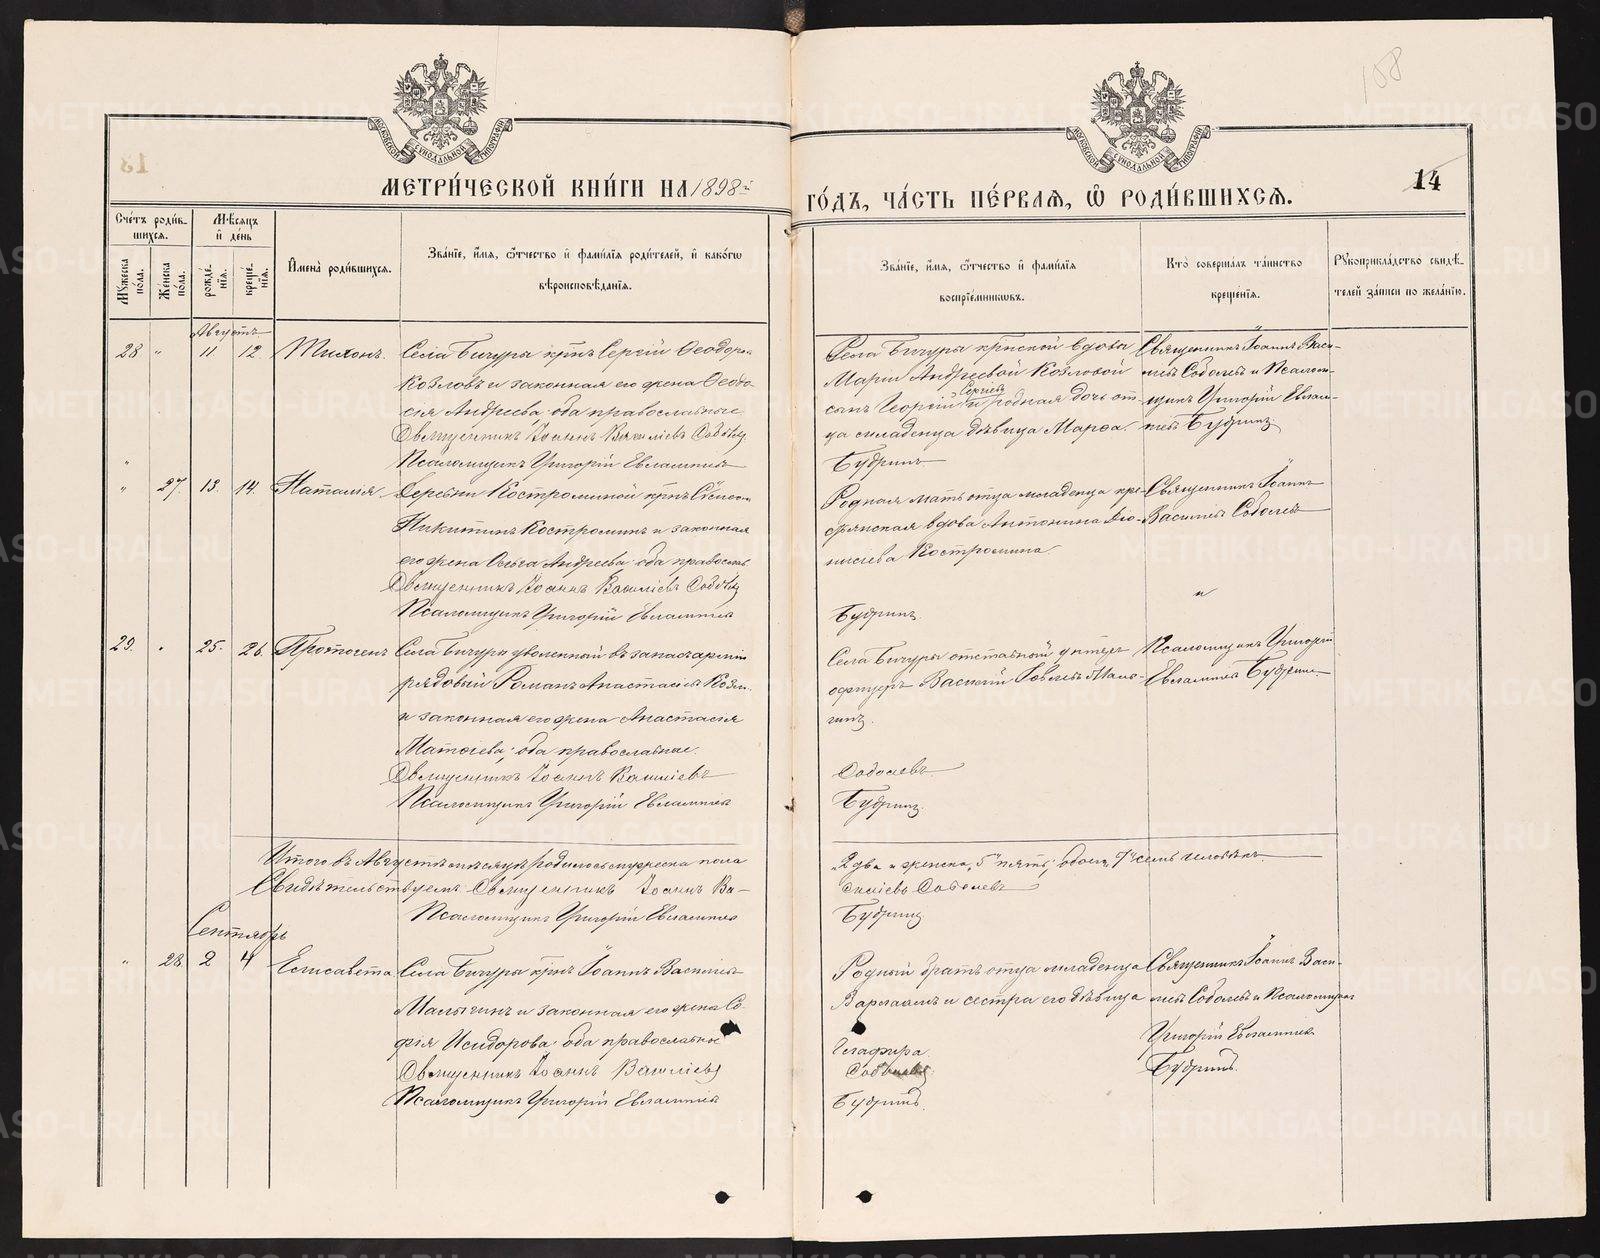 108
МОСКОВСКОЙ СѴНОДАЛЬНОЙ ТИПОГРАФІИ
МОСКОВСКОЙ СѴНОДАЛЬНОЙ ТИПОГРАФІИ
13
14
МЕТРИ́ЧЕСКОЙ КНИ́ГИ НА 1898й
ГО́ДЪ, ЧА́СТЬ ПЕ́РВАѦ, Ѽ РОДИ́ВШИХСѦ.
Сче́тъ роди́в-
шихсѧ.
Мꙋ́жеска по́ла.
Же́нска по́ла.
Мѣ́сѧцъ и҆ де́нь
рожде́-нїѧ.
креще́-нїѧ.
И҆мена̀ роди́вшихсѧ.
Зва́нїе, и҆́мѧ, ѻ҆́тчество и҆ фами́лїѧ роди́телей, и҆ како́гѡ
вѣроисповѣ́данїѧ.
Зва́нїе, и҆́мѧ, ѻ҆́тчество и҆ фами́лїѧ
воспрїе́мникѡвъ.
Кто̀ соверша́лъ та́инство
креще́нїѧ.
Рꙋкоприкла́дство свидѣ́-
телей за́писи по жела́нїю.
Августъ
28 „ 11 12 Тихонъ. Села Бичуры крнъ Сергій Ѳеодоров
Козловъ и законная его жена Ѳеодо-
сія Андреева; оба православные
Священникъ Іоаннъ Васильевъ Соболевъ
Псаломщикъ Григорій Евлампіев
Села Бичуры крнской вдовы
Маріи Андреевой Козловой
сынъ Георгій Сергіевъ и родная дочь от-
ца младенца дѣвица Марѳа.
Будринъ
Священникъ Іоаннъ Васи-
ліев Соболевъ и Псалом-
щикъ Григорій Евлам-
піев Будринъ
„ 27. 13. 14. Наталія Деревни Костроминой крнъ
Никитинъ Костроминъ и законная
его жена Ольга Андреева; оба православ
Священникъ Іоаннъ Васильевъ Соболевъ
Псаломщикъ Григорій Евлампіев
Родная мать отца младенца кре-
стьянская вдова Антонина Діо-
нисіева Костромина
Будринъ
Священникъ Іоаннъ
Василіев Соболевъ
и
29. „ 25. 26. Протогенъ Села Бичуры уволенный въ запасъ арміи
рядовый Романъ Анастасіев Козл.
и законная его жена Анастасія
Матѳіева; оба православные.
Священникъ Іоаннъ Васильевъ
Псаломщикъ Григорій Евлампіев
Села Бичуры отставный унтер
офицеръ Василій Іовлев Малы-
гинъ.
Соболевъ
Будринъ.
Псаломщикъ Григорій
Евлампіев Будринъ
Итого въ Августѣ мѣсяцѣ родилось мужеска пола
„2 два и женска „5 пять; обоего „7 семь человѣкъ.
Свидѣтельствуемъ: Священникъ Іоаннъ Ва-
силіевъ Соболевъ
Псаломщикъ Григорій Евлампіев
Будринъ
Сентябрь
„ 28. 2 4 Елисавета. Села Бичуры крнъ Іоаннъ Василіев
Малыгинъ и законная его жена Со-
фія Исидорова; оба православные
Священникъ Іоаннъ Васильевъ
Псаломщикъ Григорій Евлампіев
Родный братъ отца младенца
Варлаамъ и сестра его дѣвица
Глафира.
Соболевъ
Будринъ.
Священникъ Іоаннъ Васи-
ліев Соболевъ и Псаломщикъ
Григорій Евлампіев
Будринъ.
METRIKI.GASO-URAL.RU